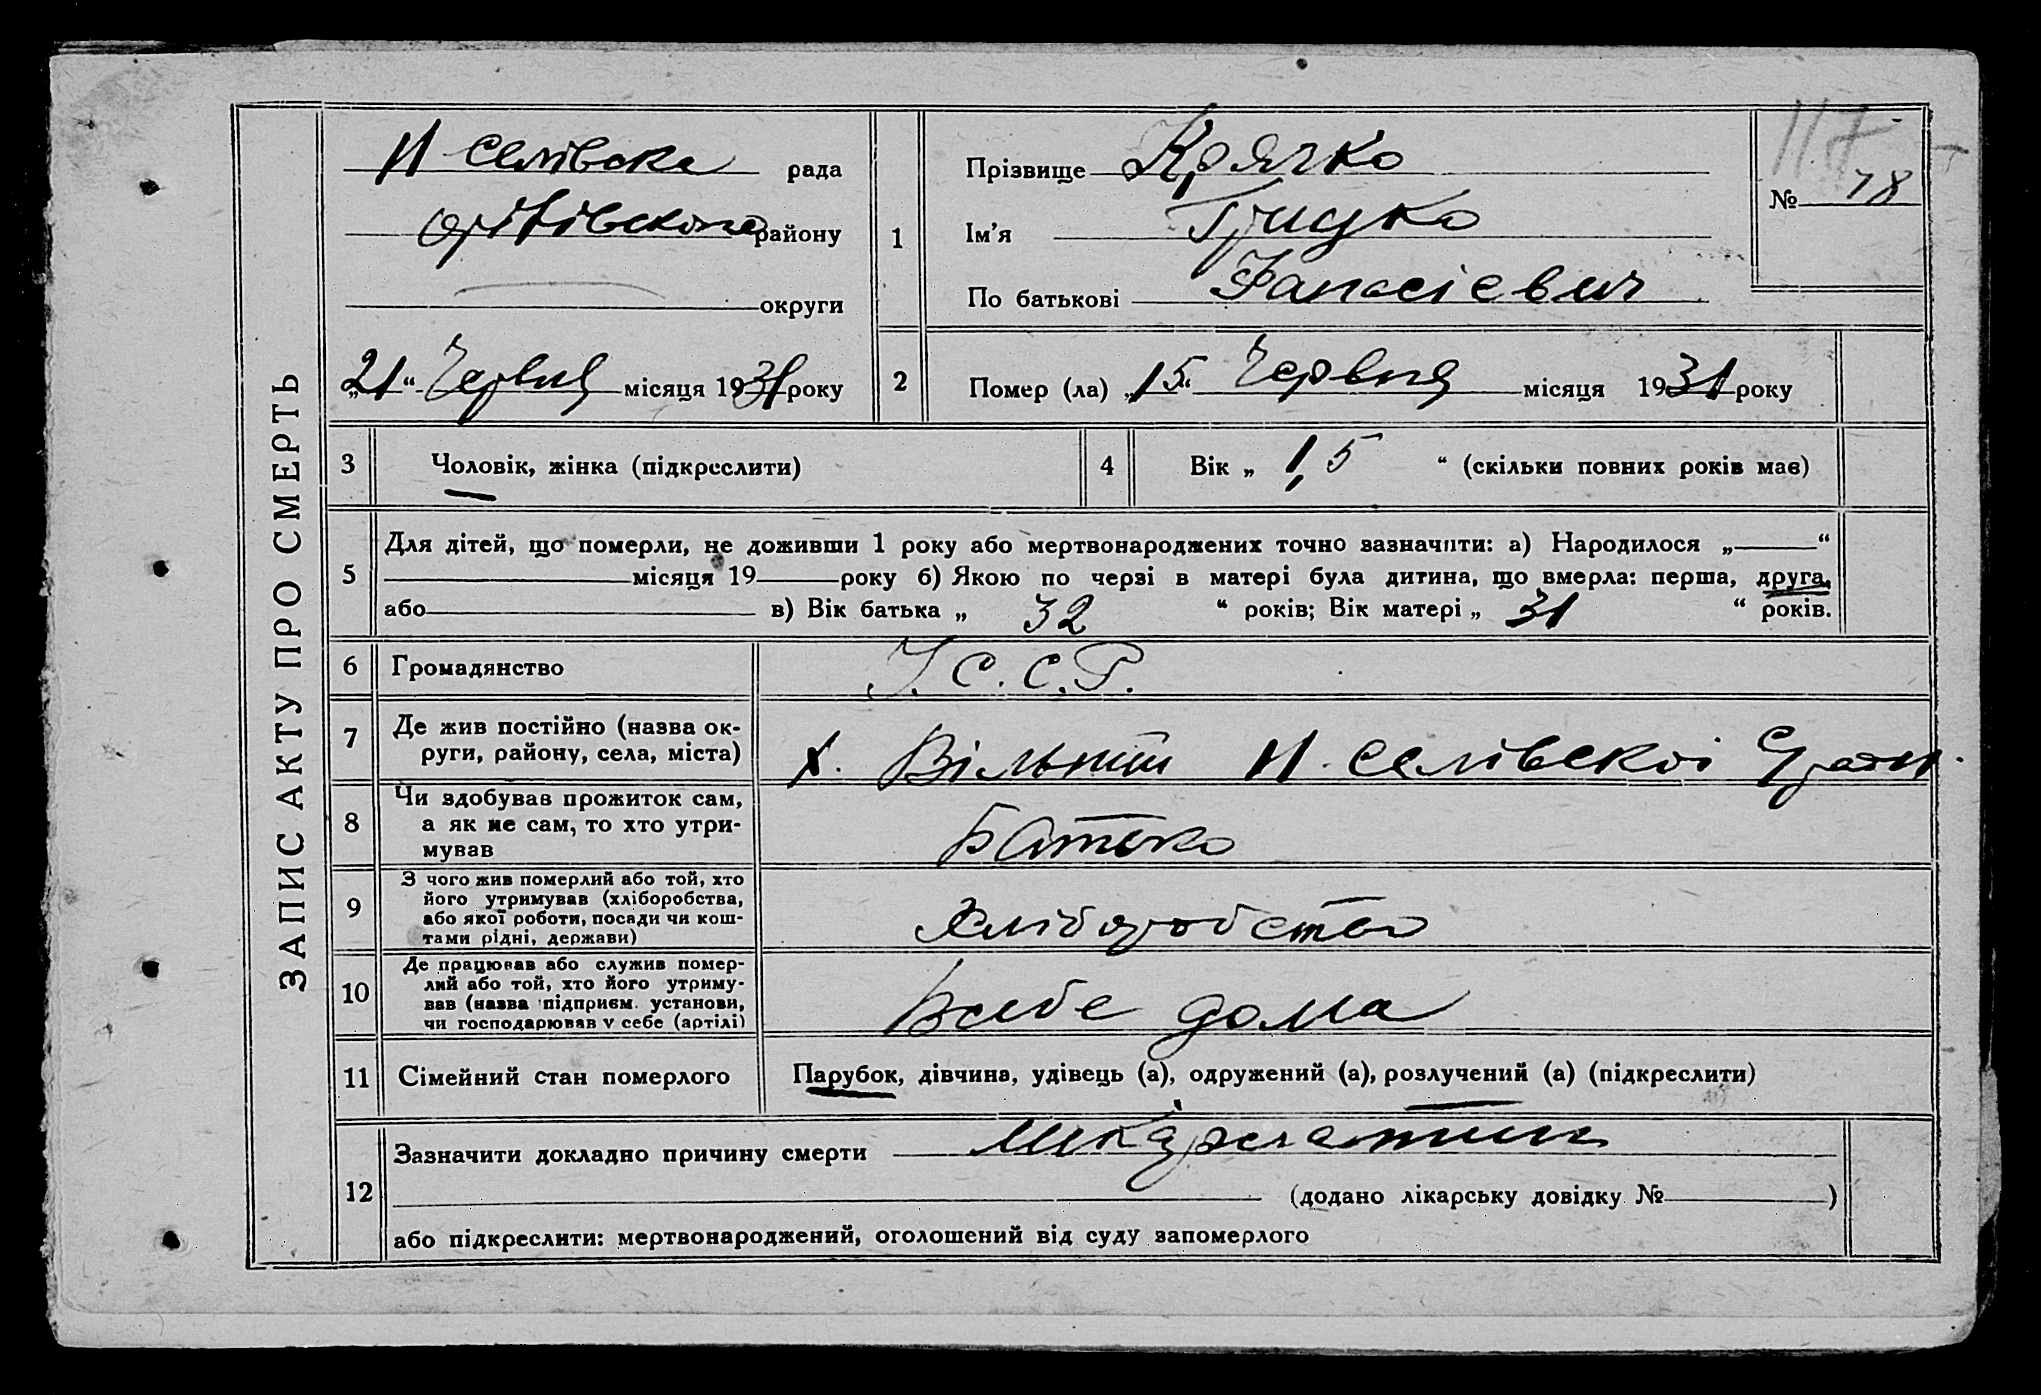 ЗАПИС АКТУ ПРО СМЕРТЬ
Н Селівська рада
району
округи
„21“ Червня місяця 1931 року
1
Прізвище Крячко
Ім’я Грицко
По батькові Панасієвич
117
№ 78
2
Помер (ла) „15“ Червня місяця 1931 року
3 Чоловік, жінка (підкреслити)
4 Вік „ 1,5 “ (скільки повних років має)
5 Для дітей, що померли, не доживши 1 року або мертвонароджених точно зазначити: а) Народилося „ “
місяця 19 року б) Якою по черзі в матері була дитина, що вмерла: перша, друга,
або в) Вік батька „ 32 “ років; Вік матері „ 31 “ років.
6 Громадянство У.С.С.Р.
7 Де жив постійно (назва ок-
руги, району, села, міста)
х. Вільний Н. Селівскоі Сради
8 Чи здобував прожиток сам,
а як не сам, то хто утри-
мував
Батько
9 З чого жив померлий або той, хто
його утримував (хліборобства,
або якої роботи, посади чи кош-
тами рідні, держави)
Хліборобство
10 Де працював або служив помер-
лий або той, хто його утриму-
вав (назва підприєм. установи,
чи господарював у себе (артілі)
Всебе дома
11 Сімейний стан померлого Парубок, дівчина, удівець (а), одружений (а), розлучений (а) (підкреслити)
12 Зазначити докладно причину смерти
(додано лікарську довідку № )
або підкреслити: мертвонароджений, оголошений від суду запомерлого